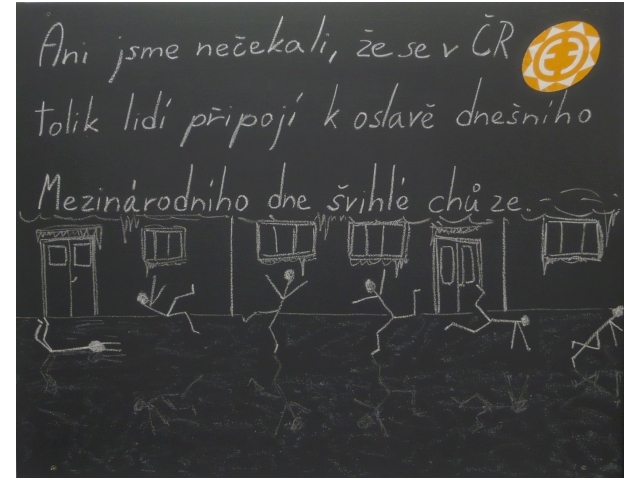 Ani jsme nečekali, že se v ČR
tolik lidí připojí k oslavě dnešního
Mezinárodního dne švihlé chůze.